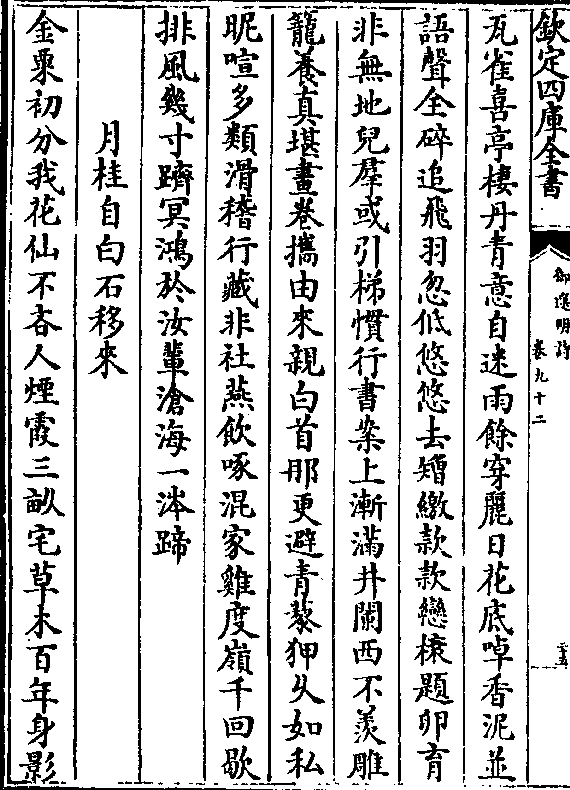 欽定四庫全書
御選明詩
卷九十二
瓦雀喜亭棲丹青意自迷雨餘穿麗日花底啅香泥並
語聲全碎追飛羽忽低悠悠去矰繳款款戀榱題卵育
非無地兒羣或引梯慣行書案上漸滿井闌西不羨雕
籠養真堪畫卷攜由來親白首那更避青藜狎久如私
昵喧多類滑稽行藏非社燕飲啄混家雞度嶺千回歇
排風幾寸躋冥鴻於汝輩滄海一涔蹄
月桂自白石移來
金粟初分我花仙不吝人煙霞三畝宅草木百年身影